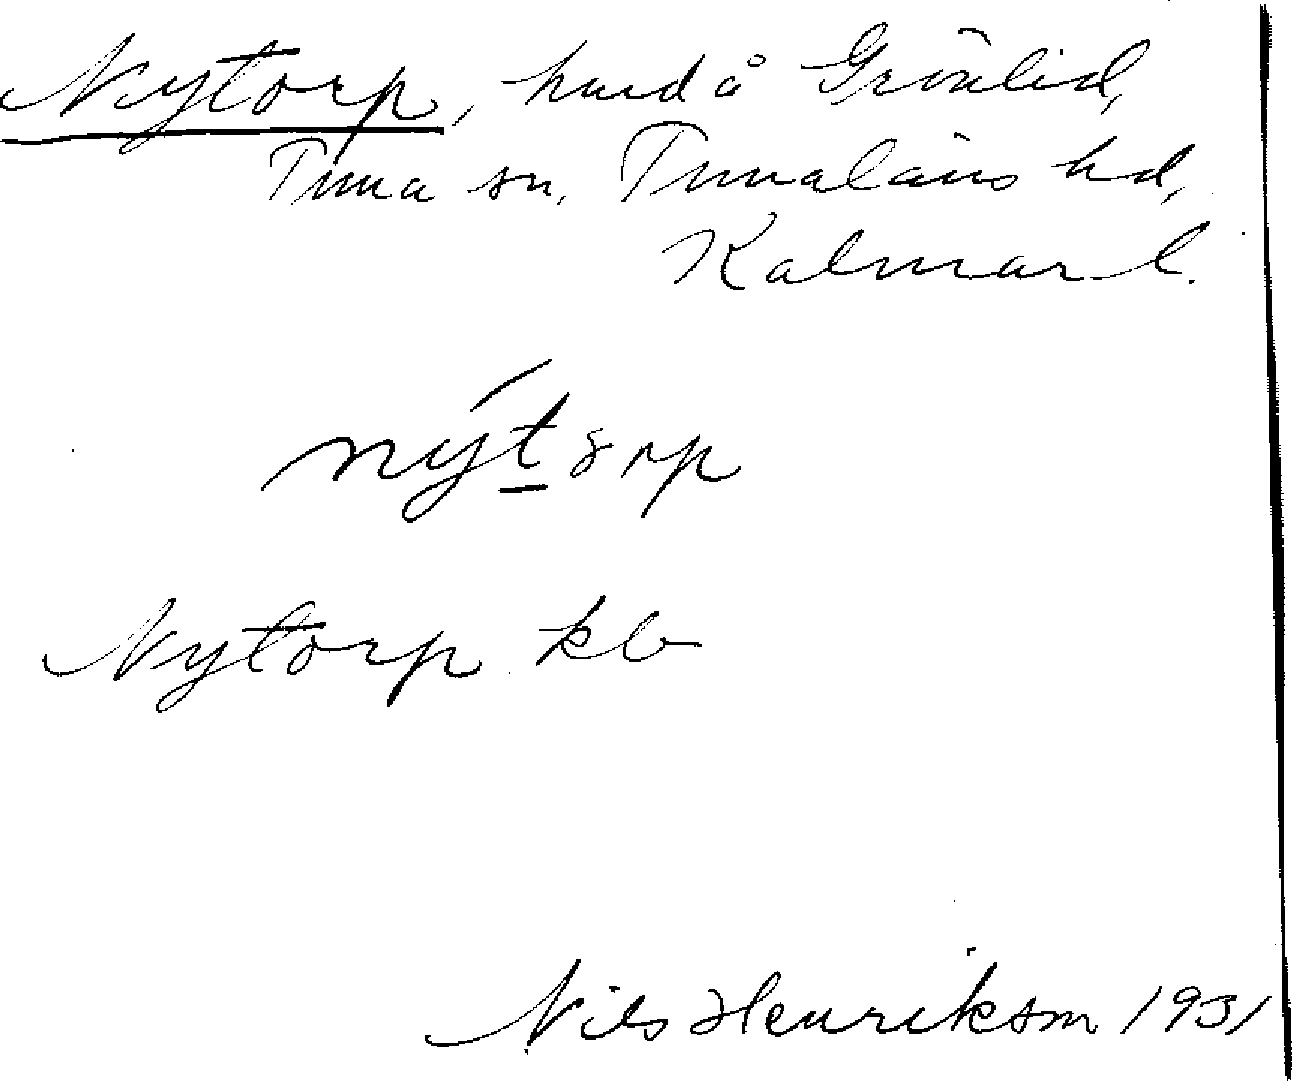 Nytorp, husd å Grönlid,
Tuna sn, Tunaläns hd,
Kalmar l.
nýt
Nytorp kb
Nils Henrikson 1931